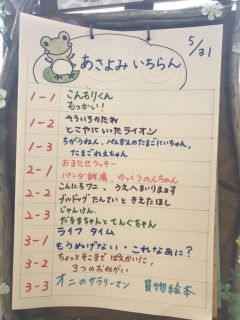 あさよみ いちらん
5/31
1-1 こんもりくん
もっかい!
1-2 そらいろのたね
とこやにいったライオン
1-3 ちがうねん、ぺんぎんのたまごにいちゃん、
たまごねえちゃん
2-1 おまたせクッキー
パンダ銭湯、ゆっくりのんちゃん
2-2 こんにちワニ、うえへまいります
ブルドッグたんていときえたほし
2-3 じゃんけん、
だるまちゃんとてんぐちゃん
3-1 ライフタイム
もうぬげない・これなあに?
3-2 ちょっとそこまでぱんかいに、
3つのおねがい
3-3 オニのサラリーマン 貨物絵本